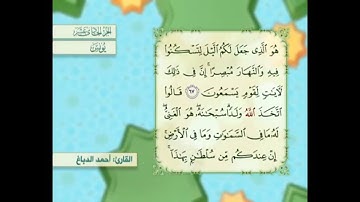 الجزء الحادي عشر
يونس
هُوَ ٱلَّذِى جَعَلَ لَكُمُ ٱلَّيْلَ لِتَسْكُنُوا۟
فِيهِ وَٱلنَّهَارَ مُبْصِرًا ۚ إِنَّ فِى ذَٰلِكَ
لَءَايَٰتٍ لِّقَوْمٍ يَسْمَعُونَ ٦٧ قَالُوا۟
ٱتَّخَذَ ٱللَّهُ وَلَدًا ۗ سُبْحَٰنَهُۥ ۖ هُوَ ٱلْغَنِىُّ ۖ
لَهُۥ مَا فِى ٱلسَّمَٰوَٰتِ وَمَا فِى ٱلْأَرْضِ ۚ
إِنْ عِندَكُم مِّن سُلْطَٰنٍۭ بِهَٰذَآ ۚ
القارئ: أحمد الدباغ